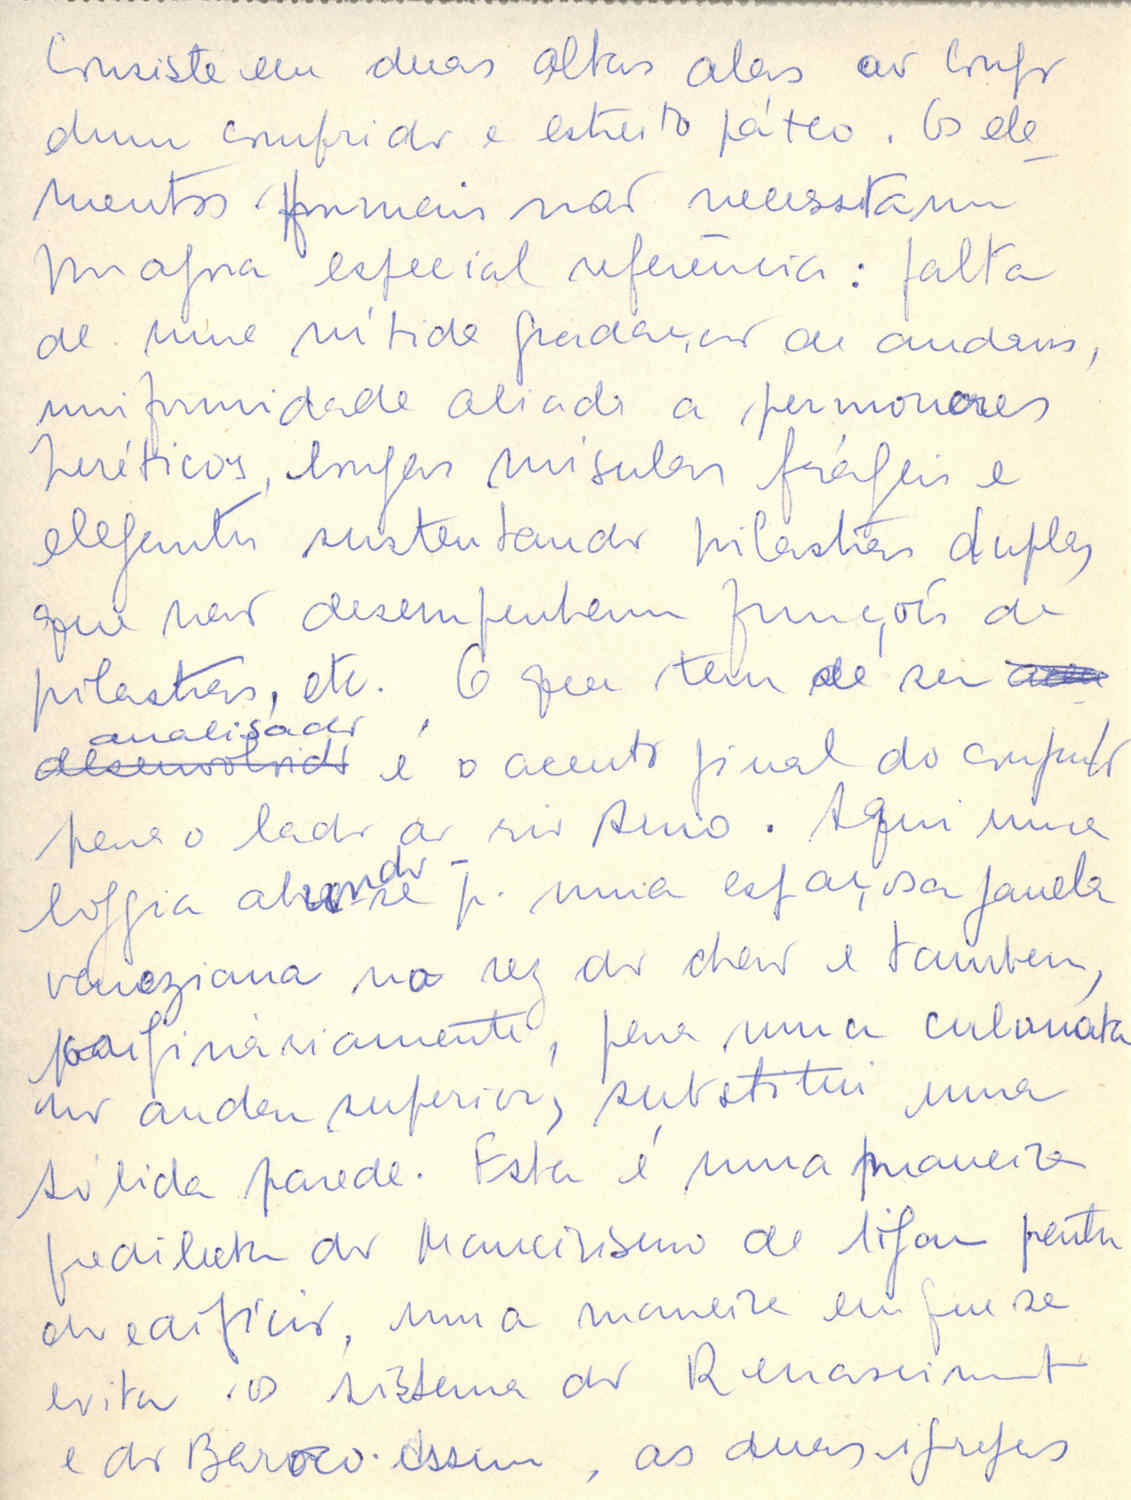 Consiste em duas altas alas ao longo
dum comprido e estreito páteo. Os ele
mentos formais não necessitam
por agora especial referência: falta
de uma nítida gradação de andares,
uniformidade aliada a pormenores
heréticos, longas mísulas frágeis e
elegantes sustentando pilastras duplas
que não desempenham funções de
pilastras, etc. O que tem de ser
analisado
desenvolvido é o acento final do conjunto
para o lado do rio Arno. Aqui uma
loggia abrindo-se p. uma espaçosa janela
veneziana no rez do chão e tambem,
originàriamente, para uma culunata
no andar superior, substitui uma
sólida parede. Esta é uma maneira
predilecta do Maneirismo de ligar partes
do edifício, uma maneira em que se
evita o sistema do Renasciment
e do Baroco. Assim, as duas igrejas